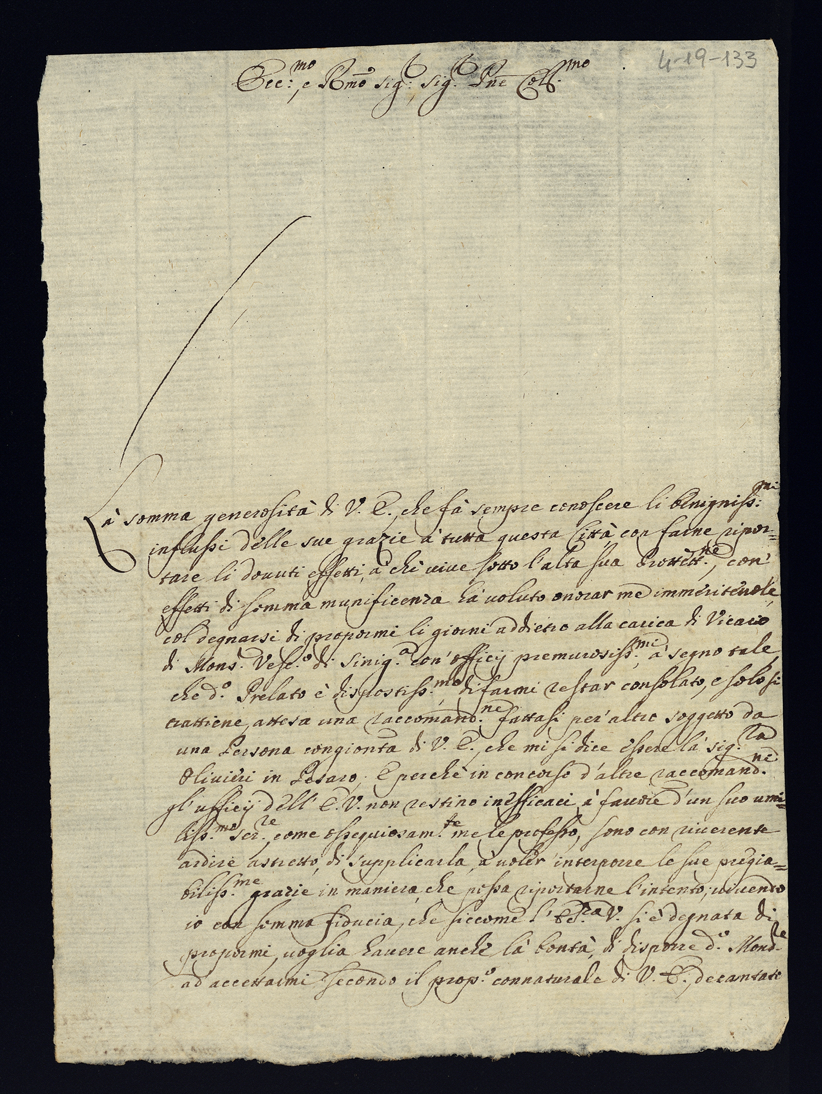 4-19-133
Ecc:mo, e Rmo Sig: Sig: Pne Col:mo
La somma generosità di V. E., che fà sempre conoscere li benigniss:mi
influssi delle sue grazie à tutta questa Città con farne ripor=
tare li douuti effetti, à chi viue sotto l'alta sua Prottett:ne, con
effetti di somma munificenza hà voluto onorar me immeriteuole,
col degnarsi di propormi li giorni addietro alla carica di Vicario
di Mons: Vesc:o di Sinig:a con officij premurosiss:mi, à segno tale,
che d:o Prelato è dispostiss:mo di farmi restar consolato, e solo si
trattiene, attesa una raccomand:ne fattasi per altro soggetto da
una Persona congionta di V. E., che mi si dice essere la sig:ra
Oliuieri in Pesaro; E perche in concorso d'altre raccomand:ni
gl'ufficij dell'E. V. non restino inefficaci, à fauore d'un suo umi=
liss:mo ser:re, come ossequiosam:te me le professo, sono con riuerente
ardire astretto, di supplicarla, à voler interporre le sue pregia=
biliss:me grazie in maniera, che possa riportarne l'intento, uiuendo
io con somma fiducia, che siccome l'Ecc:za V. si è degnata di
propormi, uoglia hauere anche la bontà, di disporre d:o Mons:re
ad accettarmi secondo il prop:o connaturale di V. E., decantate